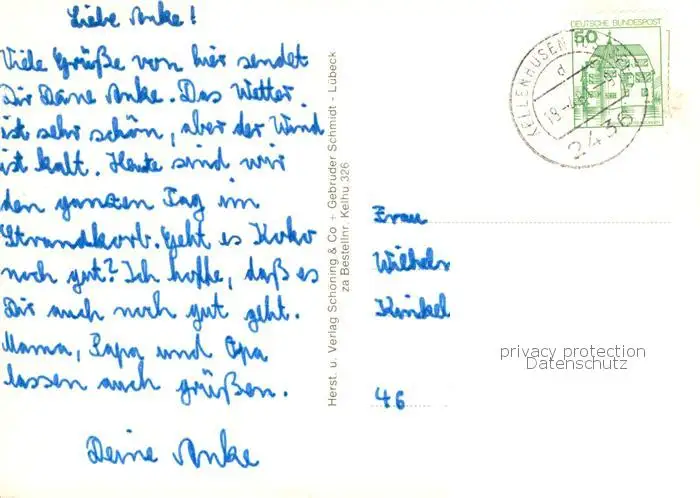 Liebe Anke!
Viele Grüße von hier sendet
Dir Deine Anke. Das Wetter
ist sehr schön, aber der Wind
ist kalt. Heute sind wir
den ganzen Tag im
Strandkorb. Geht es Koko
noch gut? Ich hoffe, daß es
Dir auch noch gut geht.
Mama, Papa und Opa
lassen auch grüßen.
Deine Anke
Herst. u. Verlag Schöning & Co + Gebrüder Schmidt - Lübeck
za Bestellnr. Kelhu 326
DEUTSCHE BUNDESPOST
50
KELLENHUSEN
d
2436
Frau
Wilhelm
Kinkel
46
privacy protection
Datenschutz